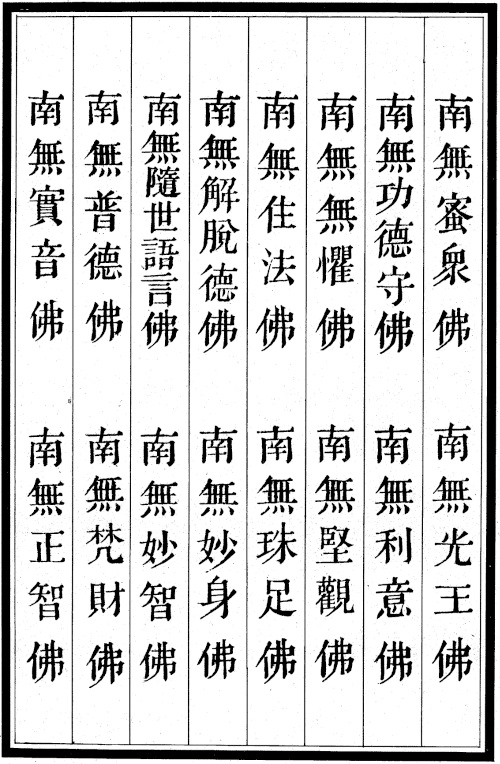 南無蜜衆佛 南無光王佛
南無功德守佛 南無利意佛
南無無懼佛 南無堅觀佛
南無住法佛 南無珠足佛
南無解脫德佛 南無妙身佛
南無隨世語言佛 南無妙智佛
南無普德佛 南無梵財佛
南無實音佛 南無正智佛